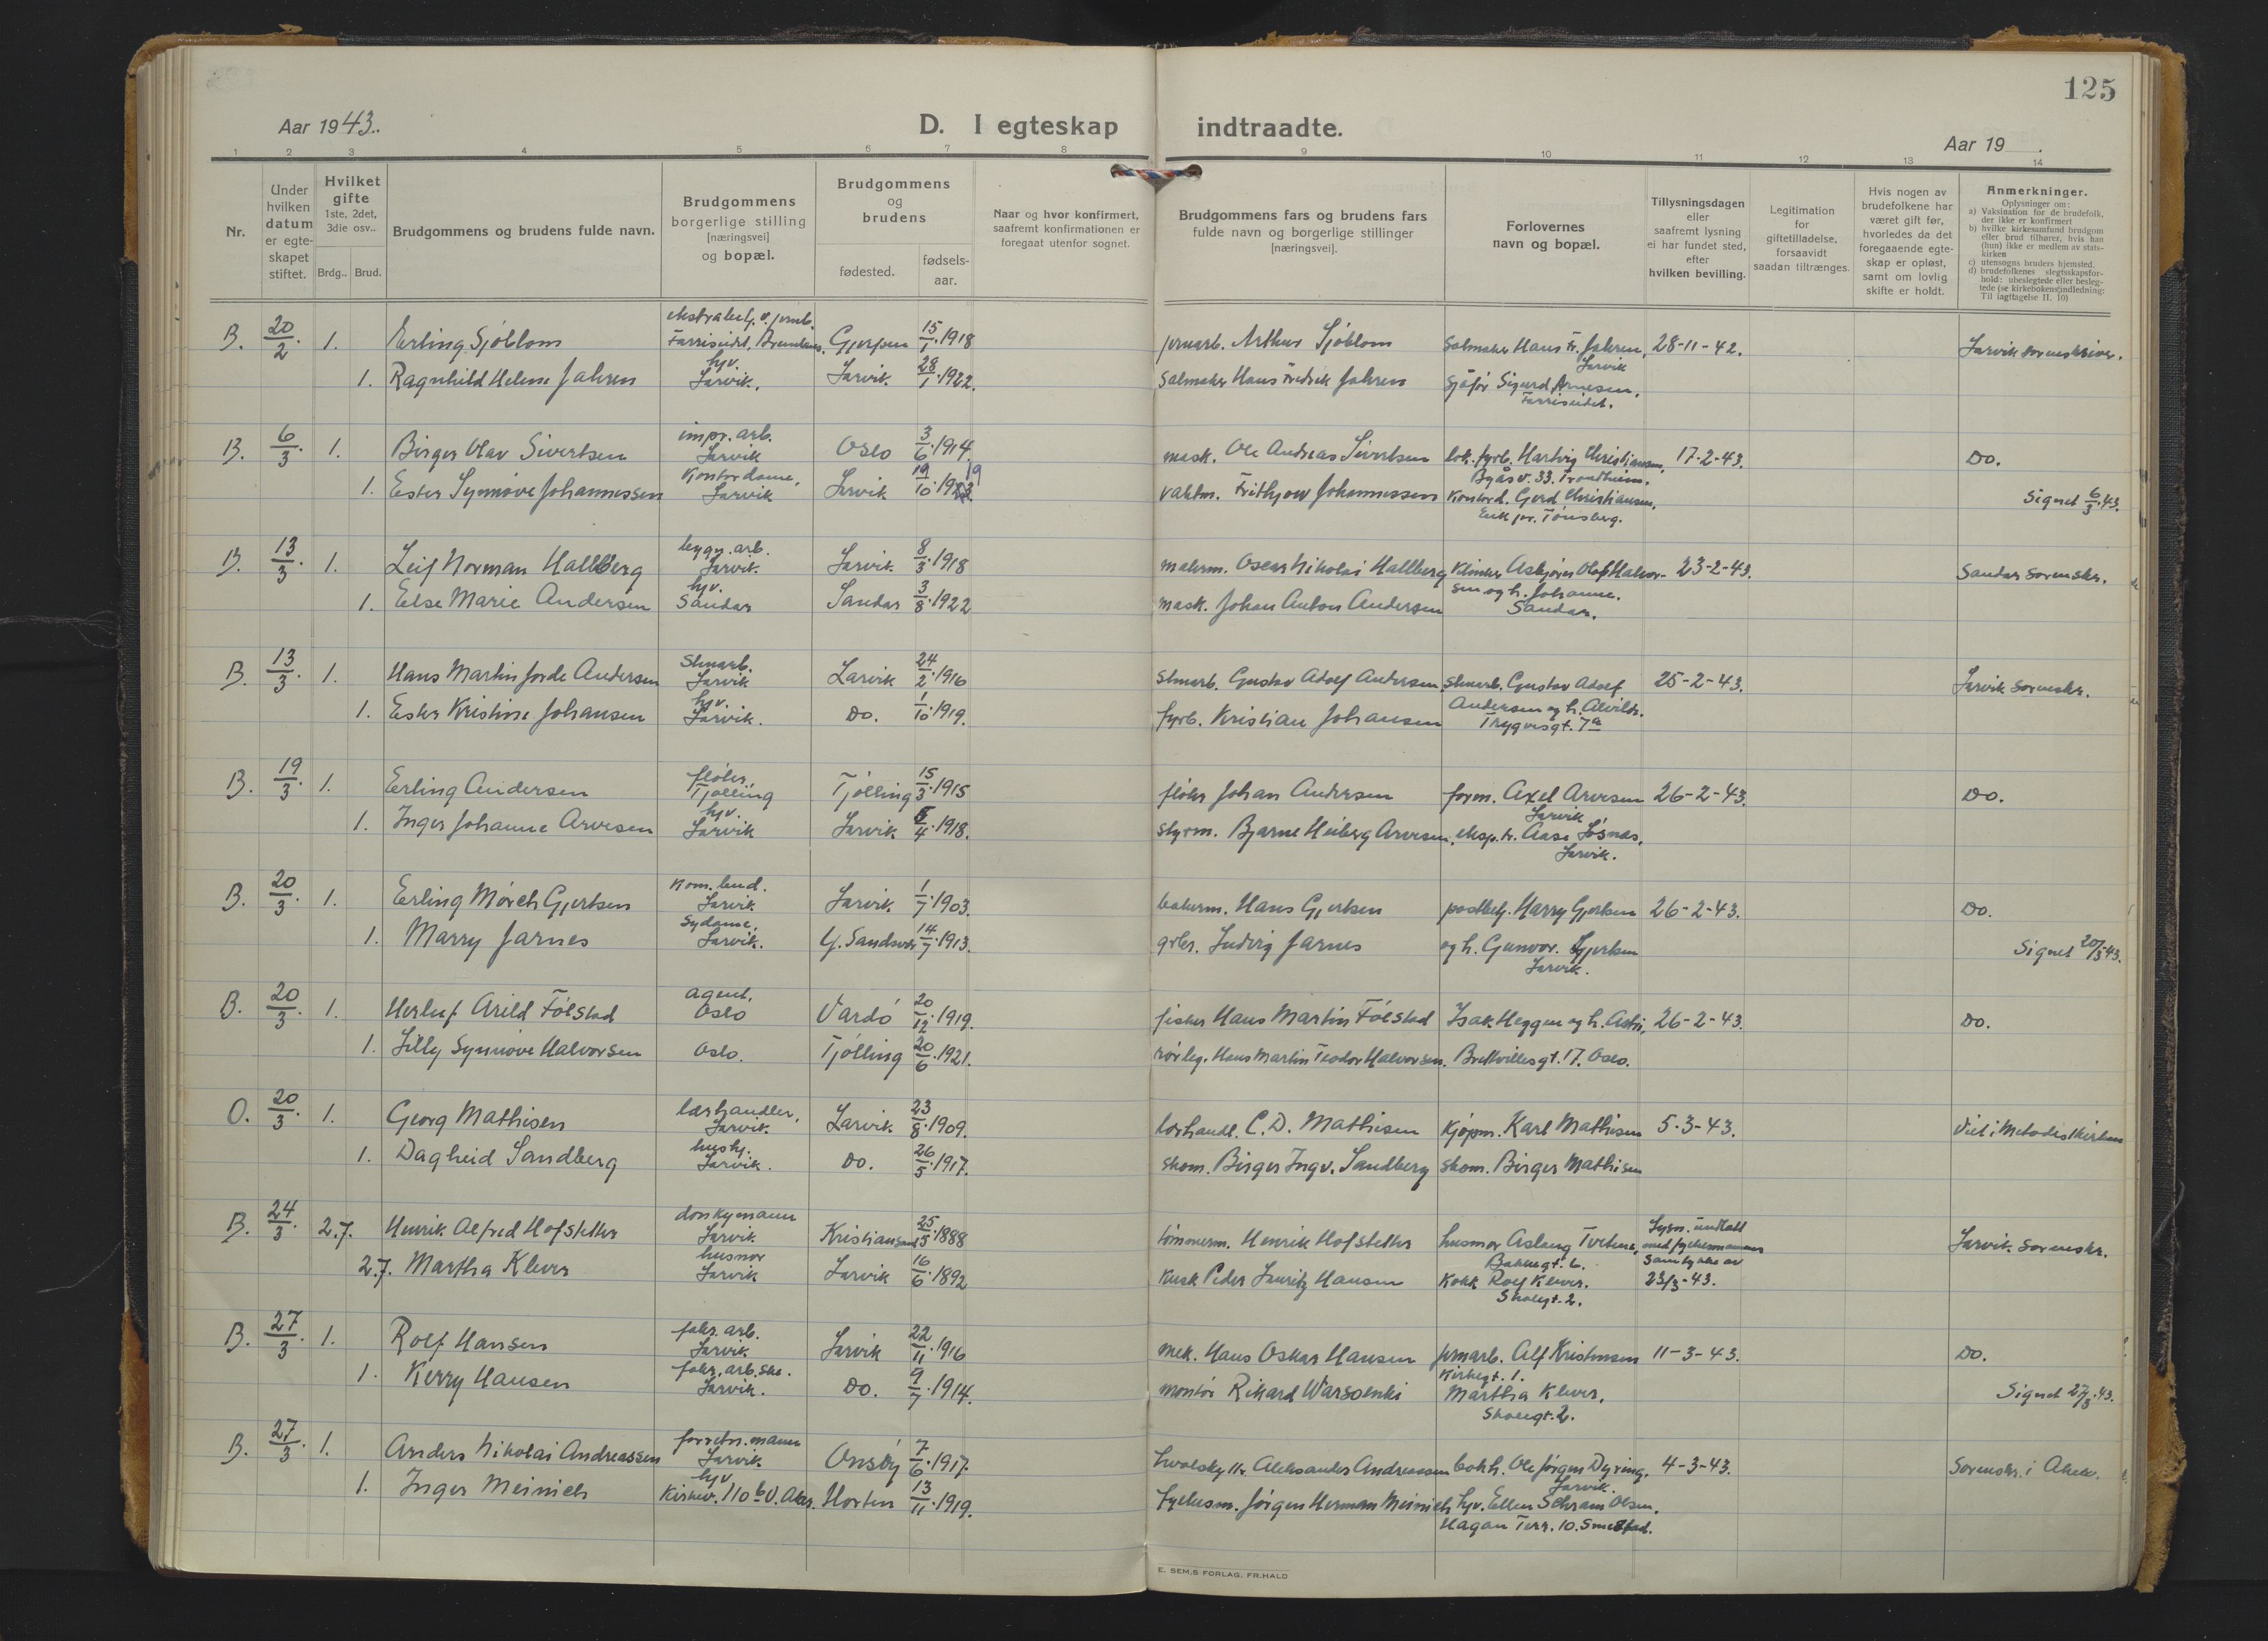 125
Aar 1943.
D. I egteskap indtraadte.
Aar 19
1 2 3 4 5 6 7 8 9 10 11 12 13 14
Nr.
Under hvilken datum er egte- skapet stiftet.
Hvilket gifte 1ste, 2det, 3die osv..
Brdg.. Brud.
Brudgommens og brudens fulde navn.
Brudgommens borgerlige stilling [næringsvei] og bopæl.
Brudgommens og brudens
fødested.
fødsels- aar.
Naar og hvor konfirmert, saafremt konfirmationen er foregaat utenfor sognet.
Brudgommens fars og brudens fars fulde navn og borgerlige stillinger [næringsvei].
Forlovernes navn og bopæl.
Tillysningsdagen eller saafremt lysning ei har fundet sted, efter hvilken bevilling.
Legitimation for giftetilladelse, forsaavidt saadan tiltrænges.
Hvis nogen av brudefolkene har været gift før, hvorledes da det foregaaende egte- skap er opløst, samt om lovlig skifte er holdt.
Anmerkninger.
Oplysninger om:
a) Vaksination for de brudefolk, der ikke er konfirmert
b) hvilke kirkesamfund brudgom eller brud tilhører, hvis han (hun) ikke er medlem av stats- kirken
c) utensogns bruders hjemsted.
d) brudefolkenes slegtsskapsfor- hold: ubeslegtede eller besleg- tede (se kirkebokens indledning: Til iagttagelse II. 10)
B. 20/2 1. Erling Sjöblom Farriseidet, Brunlanes. Gjerpen 15/1.1918 jernarb. Arthur Sjöblom Salmaker Hans Fr. Jahren, Larvik 28-11-42. Larvik sorenskriver.
1. Ragnhild Helene Jahren hjv. Larvik. Larvik 28/1.1922. Salmaker Hans Fredrik Jahren Sjåför Sigurd Arnesen, Farriseidet.
B. 6/3. 1. Birger Olav Sivertsen impr. arb. Larvik Oslo 3/6.1914. mask. Ole Andreas Sivertsen lok. fyrb. Hartvig Christiansen, Byåsv. 33. Trondheim. 17-2-43. Do.
1. Ester Synnöve Johannessen Kontordame, Larvik Larvik 19/10.19 19 vaktm. Frithjow Johannessen Kontord. Gerd Christiansen, Eik pr. Tönsberg. Signet 6/3.43.
B. 13/3. 1. Leif Norman Hallberg bygn. arb. Larvik. Larvik 8/3.1918 malerm. Oscar Nikolai Hallberg Asbjörn Olaf Halvor- 23-2-43. Sandar sorenskr.
1. Else Marie Andersen hjv. Sandar Sandar 3/8.1922 mask. Johan Anton Andersen sen og h. Johanne. Sandar.
B. 13/3. 1. Hans Martin Jorde Andersen Stenarb. Larvik Larvik 24/2.1916 Stenarb. Gustav Adolf Andersen, Stenarb. Gustav Adolf 25-2-43. Larvik sorenskr.
1. Ester Kristine Johansen hjv. Larvik. Do. 1/10.1919. fyrb. Kristian Johansen Andersen og h. Alvilde. Trygvesgt. 7a
B. 19/3. 1. Erling Andersen fløter, Tjølling Tjølling 15/3.1915 fløter Johan Andersen form. Axel Arvesen Larvik 26-2-43. Do.
1. Inger Johanne Arvesen hjv. Larvik Larvik 5/4.1918. styrm. Bjarne Heiberg Arvesen, eksp. tr. Aase Løsnæs, Larvik.
B. 20/3. 1. Erling Mörch Gjertsen Kom. bud. Larvik Larvik 1/7.1903. bakerm. Hans Gjertsen postbetj. Harry Gjertsen 26-2-43. Do.
1. Marry Jarnes Sydame, Larvik. 14/7.1913. grbr. Ludvig Jarnes og h. Gunvor Gjertsen Larvik. Signet 20/3-43.
B. 20/3. 1. Herluf Arild Fölstad agent, Oslo Vardö 20/12.1919. fisker Hans Martin Fölstad Isak Heggen og h. 26-2-43. Do.
1. Lilly Synnöve Halvorsen Oslo. Tjølling 20/6.1921. rörleg. Hans Martin Teodor Halvorsen. Brettvillesgt. 17. Oslo.
O. 20/3. 1. Georg Mathisen lærhandler, Larvik. Larvik 23/8.1909. lærhandl. C. D. Mathisen Kjöpm. Karl Mathisen 5-3-43. Viet i Metodistkirken
1. Dagheid Sandberg hush. Larvik. Do. 26/5.1917. skom. Birger Ingv. Sandberg skom. Birger Mathisen
B. 24/3. 2.f. Henrik Alfred Hofstetter donkymann Larvik Kristiansand 25/5.1888 tömmerm. Henrik Hofstetter husmor Aslaug Tvetene, Bakkegt. 6. Lysn. undlatt med fylkesmannens samtykke av 23/3-43. Larvik sorenskr.
2.f. Martha Klever husmor Larvik Larvik 16/6.1892 Kusk Peder Lauritz Hansen Kokk Rolf Klever. Skolegt. 2.
B. 27/3. 1. Rolf Hansen fabr. arb. Larvik Larvik 22/11.1916 mek. Hans Oskar Hansen jernarb. Alf Kristensen Kirkegt. 1. 11-3-43. Do.
1. Kerry Hansen fabr. arb.ske. Larvik. Do. 9/7.1914. montör Rikard Warsoenki Martha Klever, Skolegt. 2. Signet 27/3.43.
B. 27/3. 1. Anders Nikolai Andreassen forretn. mann Larvik Onsöy 7/6.1917. hvalskytter Aleksander Andreassen bokh. Ole Jörgen Dyring, Larvik. 4-3-43. Sorenskr. i Aker.
1. Inger Meinich hjv. Kirkev. 110 b V. Aker. Horten 13/11.1919. fylkesm. Jörgen Herman Meinich hjv. Ellen Schram Olsen, Hagan Terr. 10. Smestad.
E. SEM.S FORLAG. FR.HALD